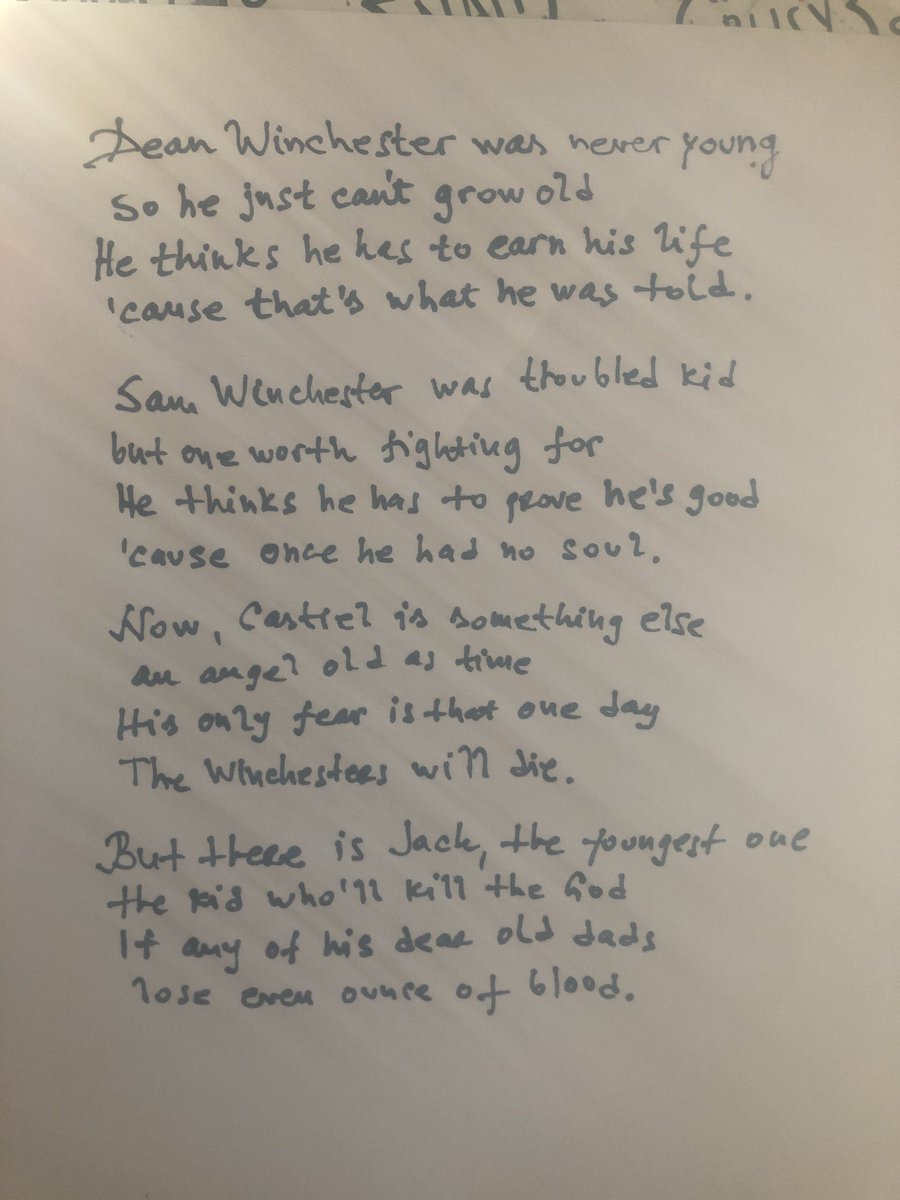 Dean Winchester was never young
so he just can't grow old
He thinks he has to earn his life
'cause that's what he was told.
Sam Winchester was troubled kid
but one worth fighting for
He thinks he has to prove he's good
'cause once he had no soul.
Now, Castiel is something else
an angel old as time
His only fear is that one day
The Winchesters will die.
But there is Jack, the youngest one
the kid who'll kill the God
If any of his dear old dads
lose even ounce of blood.